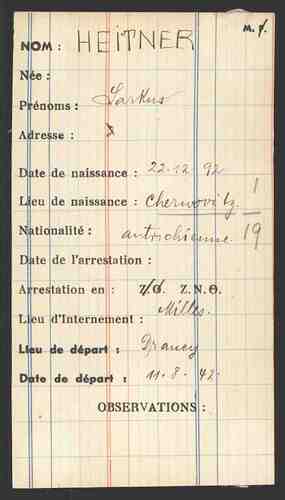 M. f.
NOM : HEITNER
Née :
Prénoms : Sarkus
Adresse :
Date de naissance : 22.12.92
Lieu de naissance : Cherwovitz 1
Nationalité : autrichienne 19
Date de l'arrestation :
Arrestation en : Z.O. Z.N.O.
Lieu d'Internement : Milles.
Lieu de départ : Drancy
Date de départ : 11.8.42.
OBSERVATIONS :